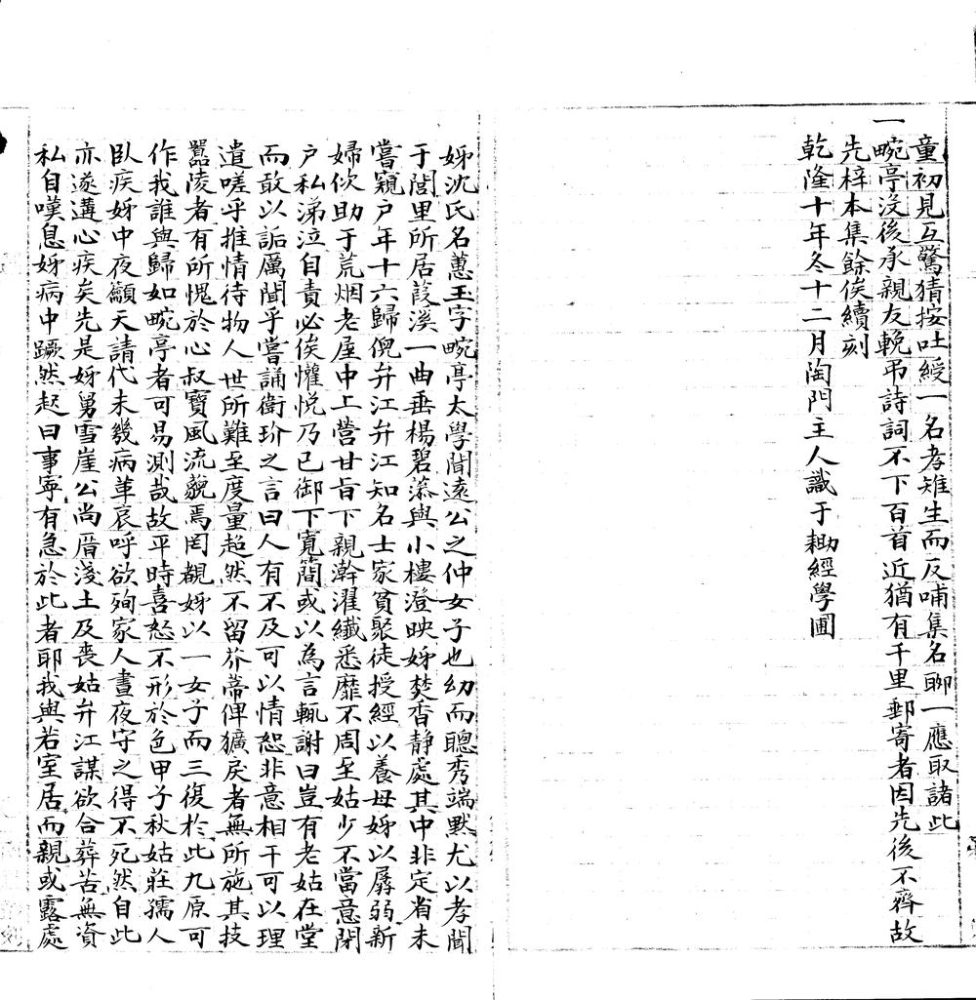 童初見互驚猜按吐綬一名孝雉生而反哺集名聊一應取諸此
一
畹亭沒後承親友輓弔詩詞不下百首近猶有千里郵寄者因先後不齊故
先梓本集餘俟續刻
乾隆十年冬十二月陶門主人識于耡經學圃
姊沈氏名蕙玉字畹亭太學聞遠公之仲女子也幼而聰秀端默尤以孝聞
于閭里所居葭溪一曲垂楊碧蓧與小樓澄映姊焚香靜處其中非定省未
嘗窺戶年十六歸倪弁江弁江知名士家貧聚徒授經以養母姊以孱弱新
婦佽助于荒烟老屋中上營甘旨下親澣濯纖悉靡不周至姑少不當意閉
戶私涕泣自責必俟懽悅乃已御下寬簡或以為言輒謝曰豈有老姑在堂
而敢以詬厲聞乎嘗誦衛玠之言曰人有不及可以情恕非意相干可以理
遣嗟乎推情待物人世所難至度量超然不留芥蒂俾獷戾者無所施其技
囂陵者有所愧於心叔寶風流藐焉罔覯姊以一女子而三復於此九原可
作我誰與歸如畹亭者可易測哉故平時喜怒不形於色甲子秋姑莊孺人
臥疾姊中夜籲天請代未幾病革哀呼欲殉家人晝夜守之得不死然自此
亦遂遘心疾矣先是姊舅雪崖公尚厝淺土及喪姑弁江謀欲合葬苦無資
私自嘆息姊病中蹶然起曰事寧有急於此者耶我與若室居而親或露處